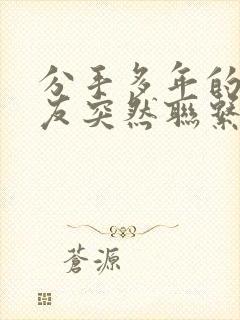 分手多年的
友突然聯繫
蒼源